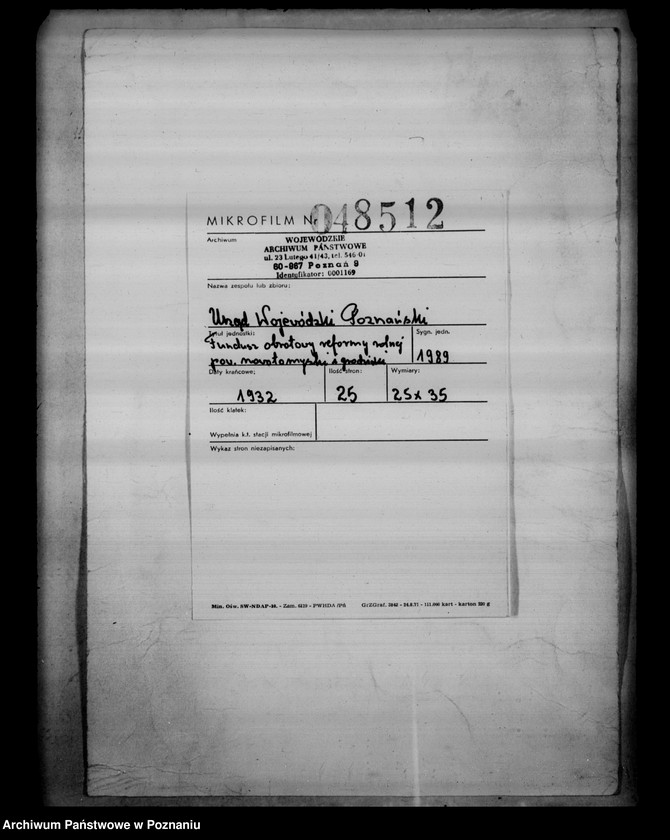 MIKROFILM Nr 048512
Archiwum
WOJEWÓDZKIE
ARCHIWUM PAŃSTWOWE
ul. 23 Lutego 41/43, tel. 546-01
60-967 Poznań 9
Identyfikator: 0001169
Nazwa zespołu lub zbioru:
Urząd Wojewódzki Poznański
Tytuł jednostki:
Fundusz obrotowy reformy rolnej
pow. nowotomyski i grodziski
Sygn. jedn.
1989
Daty krańcowe:
1932
Ilość stron:
25
Wymiary:
25 x 35
Ilość klatek:
Wypełnia k.t. stacji mikrofilmowej
Wykaz stron niezapisanych:
Min. Ośw. SW-NDAP-36. - Zam. PWRDA
GrZGraf. - karton g
Archiwum Państwowe w Poznaniu